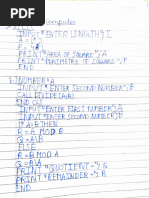 Computer
INPUT "ENTER LENGTH"; L
PRINT "AREA OF SQUARE"; A
PRINT "PERIMETRE OF SQUARE"; P
END
INPUT "ENTER SECOND NUMBER";
CALL DIVIDE (A,B)
END CLS
INPUT "ENTER FIRST NUMBER"; A
INPUT "ENTER SECOND NUMBER"; B
IF A>B THEN
R = A MOD B
Q = A\B
ELSE
R = B MOD A
Q = B\A
PRINT "QUOTIENT="; Q
PRINT "REMAINDER="; R
END